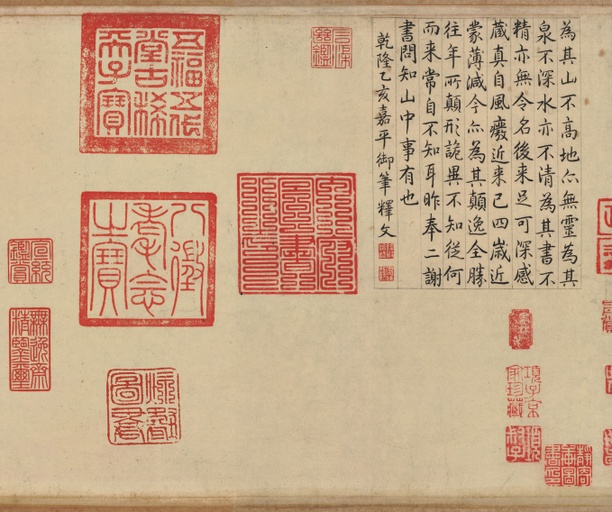 為其山不高地亦無靈為其
泉不深水亦不清為其書不
精亦無令名後来足可深感
藏真自風癈近来已四歲近
蒙薄減今亦為其顛逸全勝
往年所顛形詭異不知從何
而来常自不知耳昨奉二謝
書問知山中事有也
乾隆乙亥嘉平御筆釋文
項子京家珍藏
五福五代堂古稀天子寶
八徵耆念之寶
宣統鑑賞
無逸齋精鑒璽